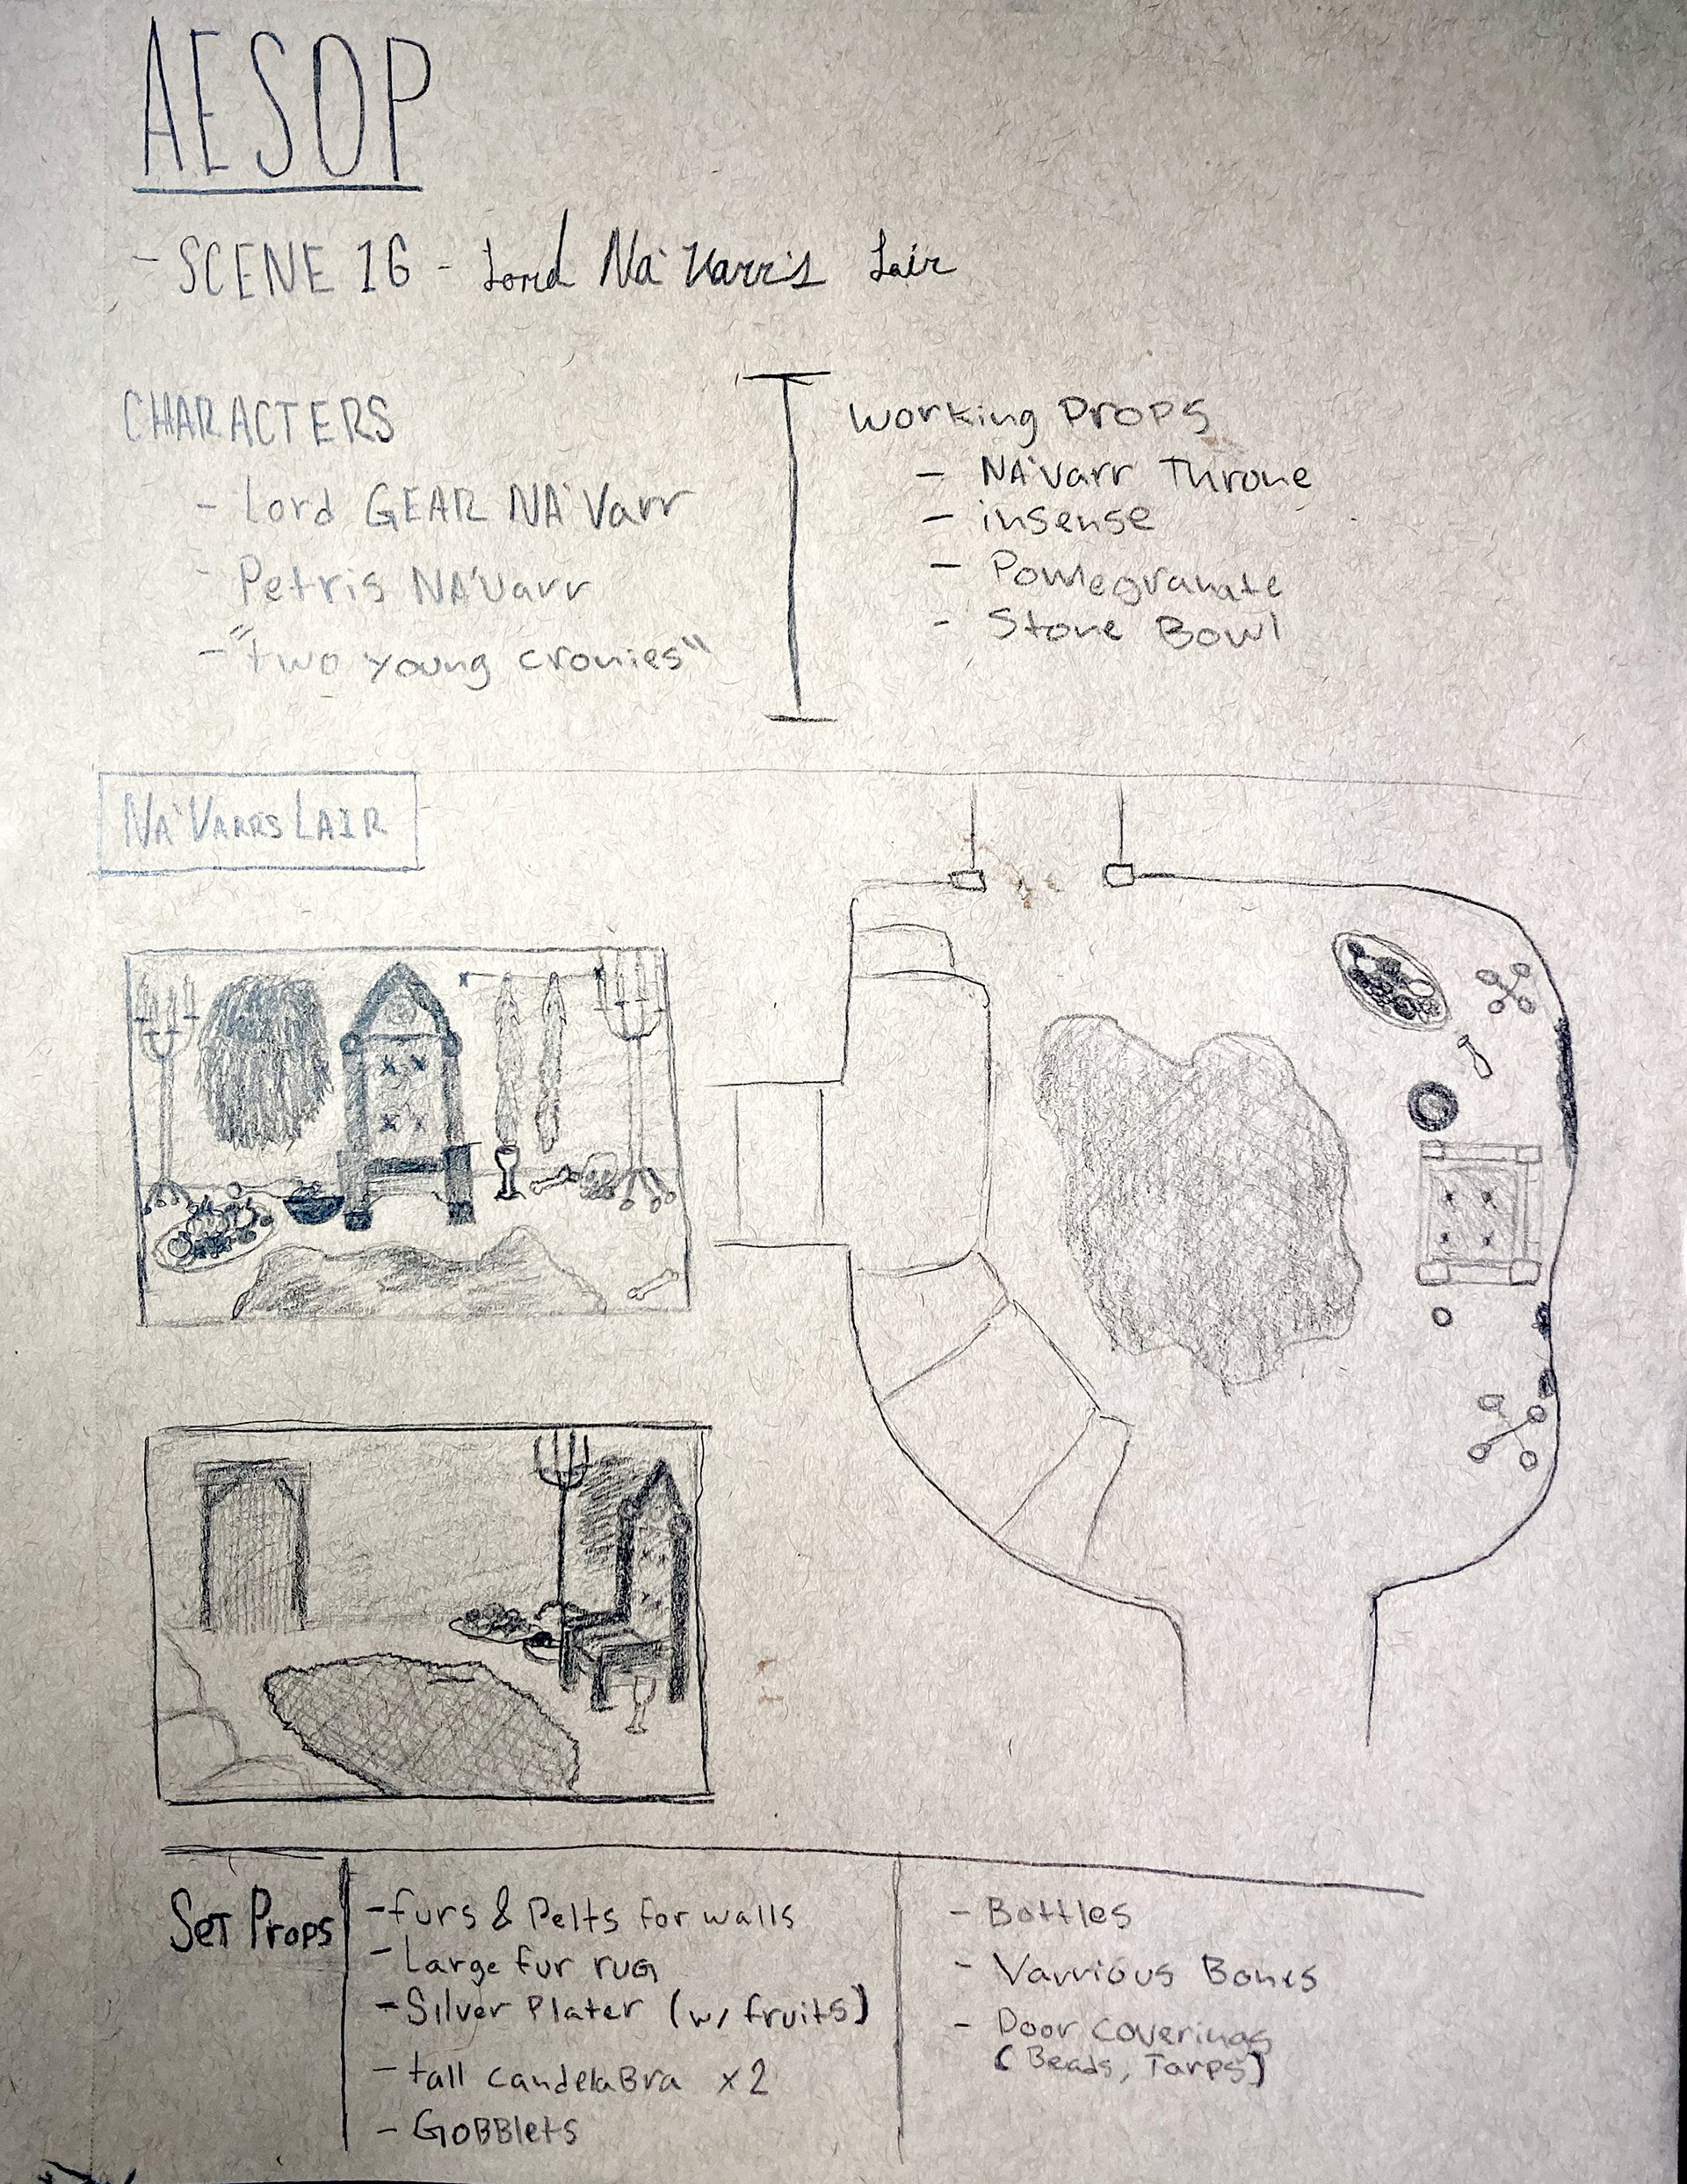 AESOP
- SCENE 16 - Lord Na'Varr's Lair
CHARACTERS
- Lord GEAR NA'Varr
- Petris NA'Varr
- "two young cronies"
Working Props
- NA'Varr Throne
- insense
- Pomegranate
- Stone Bowl
NA'VARRS LAIR
Set Props
- furs & Pelts for walls
- Large fur rug
- Silver Plater (w/ fruits)
- tall candelaBra x2
- GoBBlets
- Bottles
- Varrious Bones
- Door coverings
(Beads, Tarps)